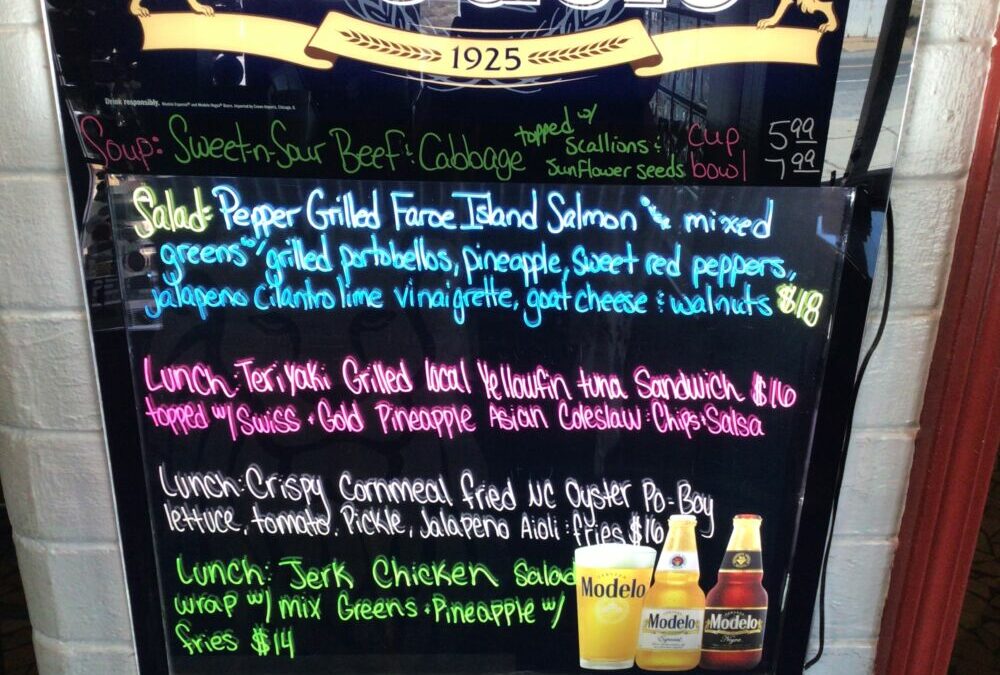 1925
Drink responsibly. Modelo Especial® and Modelo Negra® Beers. Imported by Crown Imports, Chicago, IL
Soup: Sweet-n-Sour Beef & Cabbage topped w/ scallions & sunflower seeds cup 5.99
bowl 7.99
Salad: Pepper Grilled Faroe Island Salmon mixed
greens w/ grilled portobellos, pineapple, sweet red peppers,
jalapeno cilantro lime vinaigrette, goat cheese & walnuts $18
Lunch: Teriyaki Grilled local Yellowfin tuna Sandwich $16
topped w/ Swiss + Gold Pineapple Asian Coleslaw : Chips + Salsa
Lunch: Crispy Cornmeal fried NC Oyster Po-Boy
lettuce, tomato, Pickle, Jalapeno Aioli : fries $16
Lunch: Jerk Chicken Salad
wrap w/ mix Greens + Pineapple w/
fries $14
Modelo
Modelo
Especial
Modelo
Negra